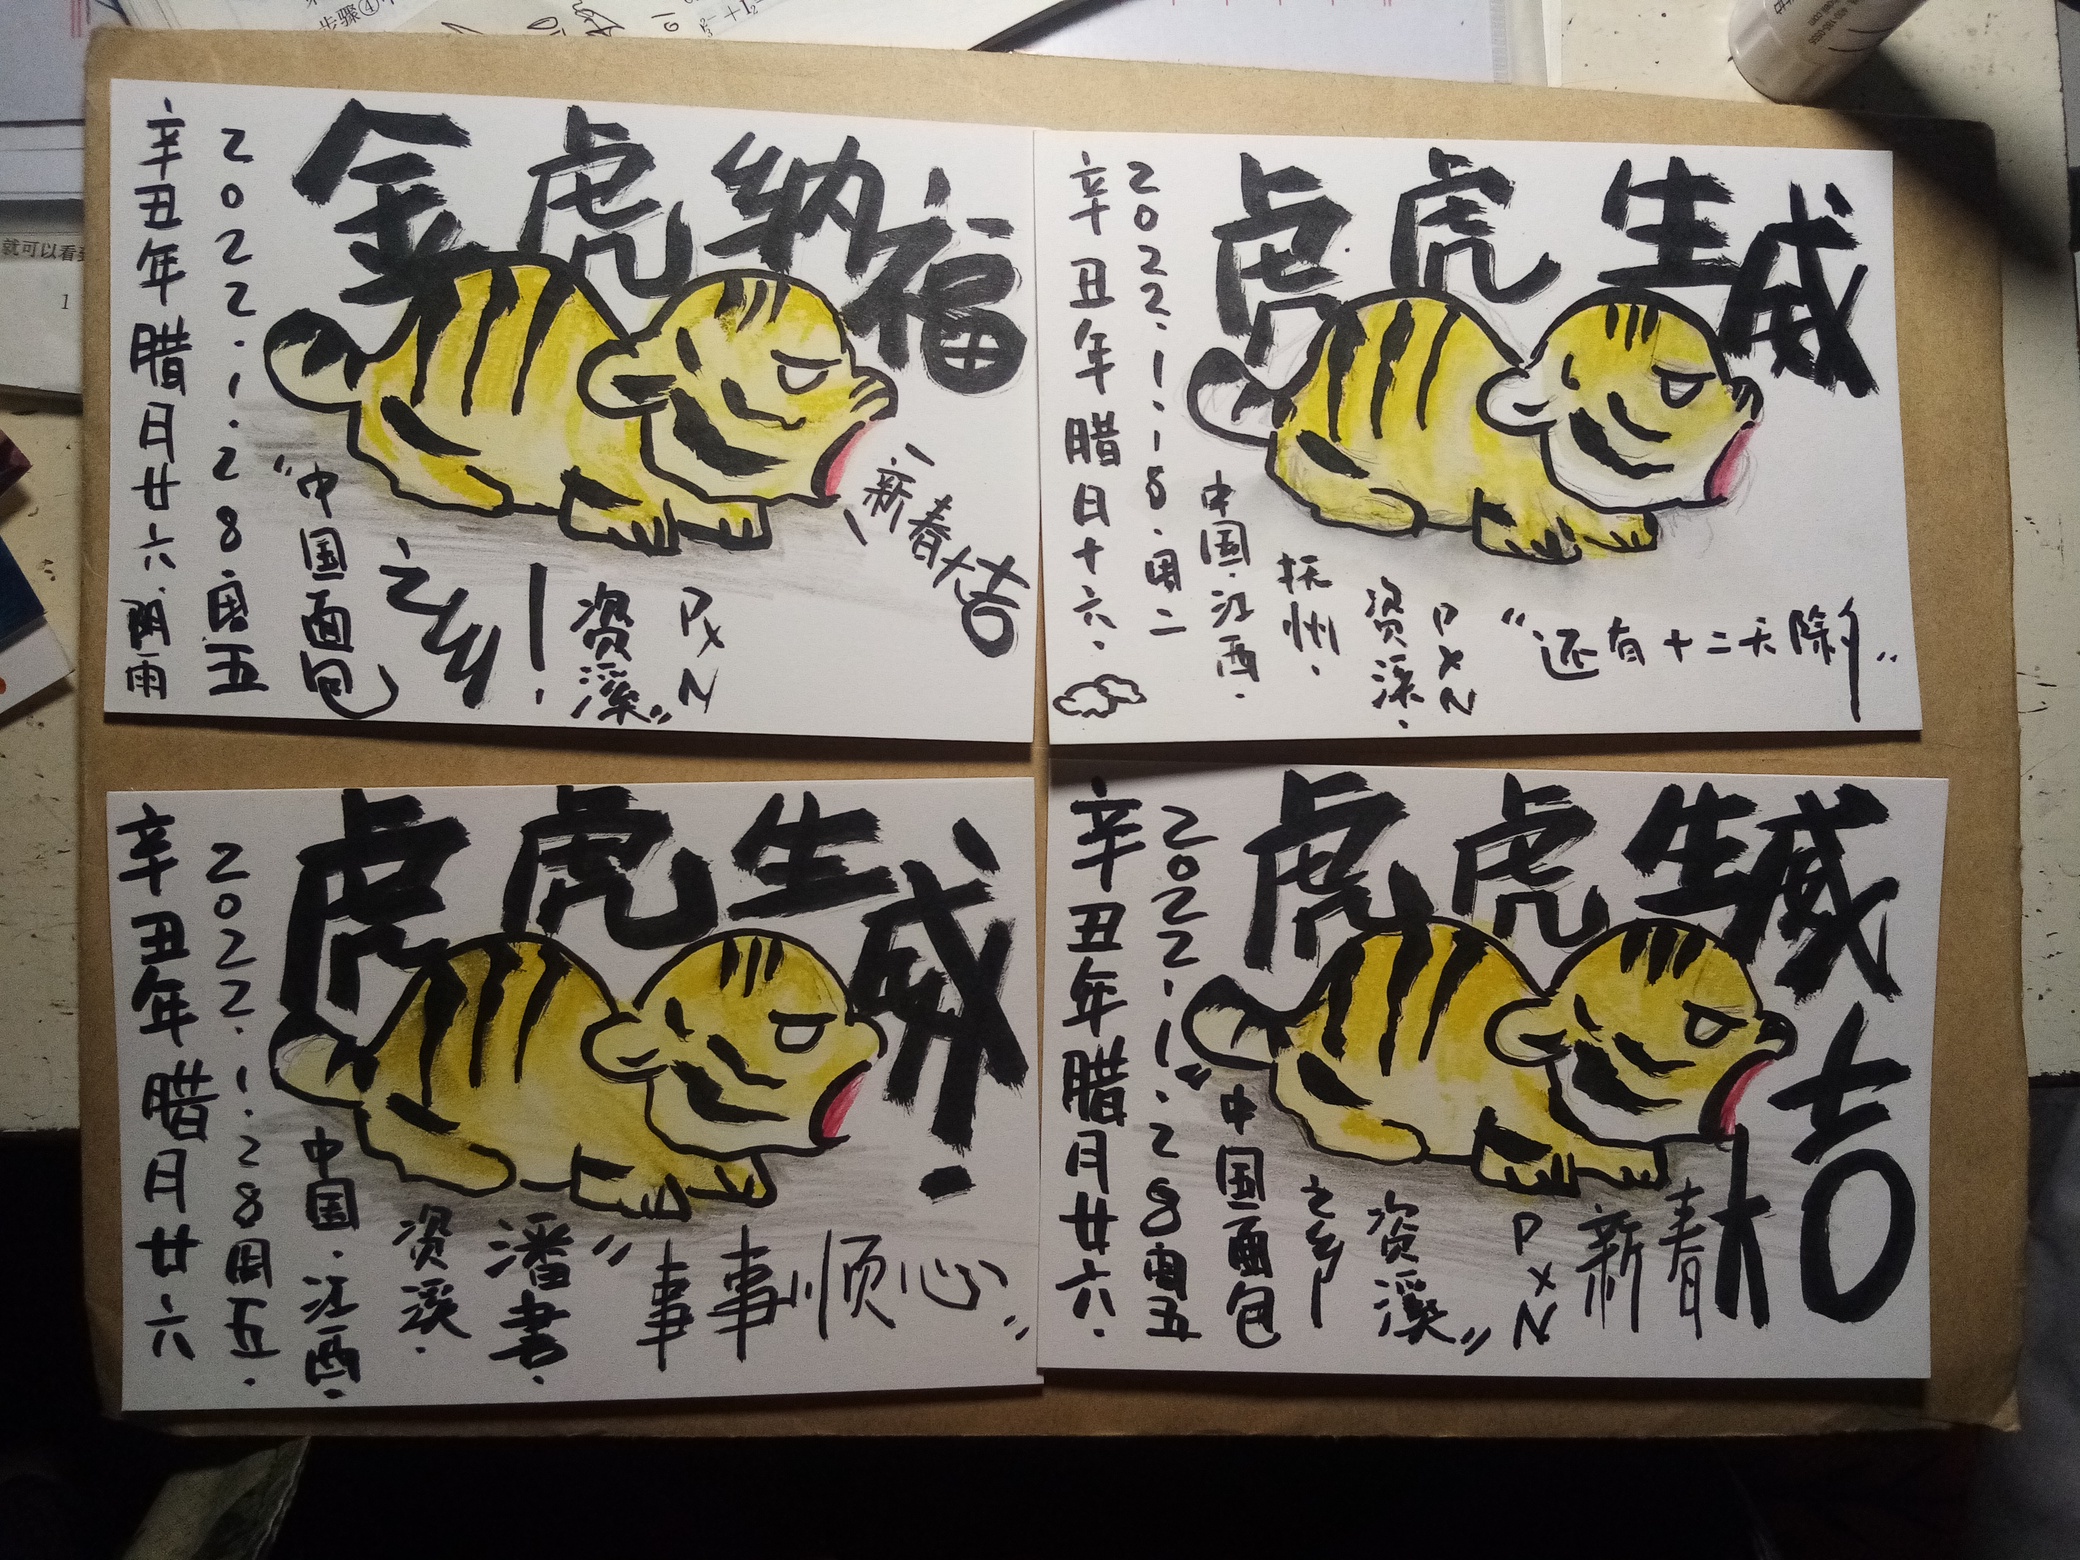 步骤④
就可以看
1
金虎纳福
辛丑年腊月廿六.阴雨
2022.1.28.周五
"中国面包之乡!资溪"
PXN
新春大吉
虎虎生威
辛丑年腊日十六.
2022.1.18.周二
中国.江西.
抚州.
资溪.
PXN
"还有十二天除夕"
虎虎生威!
辛丑年腊月廿六
2022.1.28周五.
中国.江西.
资溪.
潘书.
"事事顺心"
虎虎生威
辛丑年腊月廿六.
2022.1.28周五
"中国面包之乡资溪"
PXN
新春大吉